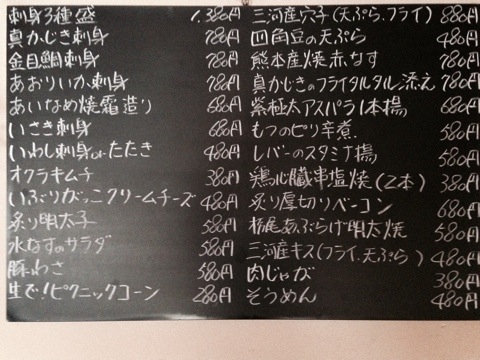 刺身3種盛 1,380円
真かじき刺身 780円
金目鯛刺身 780円
あおりいか刺身 780円
あいなめ焼霜造り 680円
いさき刺身 680円
いわし刺身orたたき 480円
オクラキムチ 380円
いぶりがっこクリームチーズ 480円
炙り明太子 580円
水なすのサラダ 580円
豚わさ 580円
生で!ピクニックコーン 280円
三河産穴子(天ぷら、フライ) 880円
四角豆の天ぷら 480円
熊本産焼赤なす 780円
真かじきのフライタルタル添え 780円
紫極太アスパラ1本揚 680円
もつのピリ辛煮 580円
レバーのスタミナ揚 580円
鶏心臓串塩焼(2本) 380円
炙り厚切りベーコン 680円
栃尾あぶらげ明太焼 580円
三河産キス(フライ、天ぷら) 480円
肉じゃが 380円
そうめん 480円